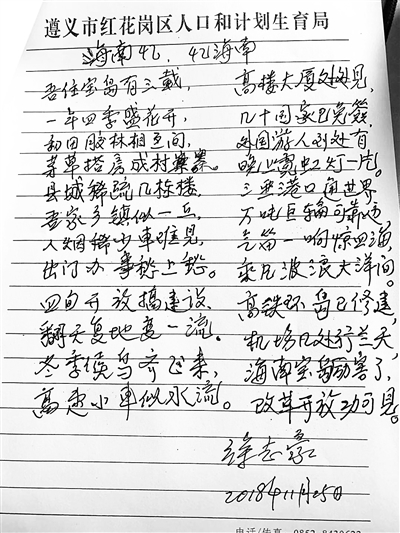 遵义市红花岗区人口和计划生育局
海南忆，忆海南
吾住宝岛有三载，
一年四季盛花开，
和田胶林相互间，
茅草搭房成村寨。
县城稀疏几栋楼，
吾家乡镇似一丘，
人烟稀少车难见，
出门办事愁上愁。
四旬开放搞建设
翻天复地变一流。
冬季候鸟齐飞来，
高速小车似水流。
高楼大厦处处见，
几十国家已免签，
外国游人到处有
晚上霓虹灯一片。
三亚港口通世界，
万吨巨轮可靠边，
气笛一响惊四海，
乘风波浪大洋间。
高铁环岛已修建，
机场几处行兰天，
海南宝岛励害了，
改革开放功可见。
2018年11月25日